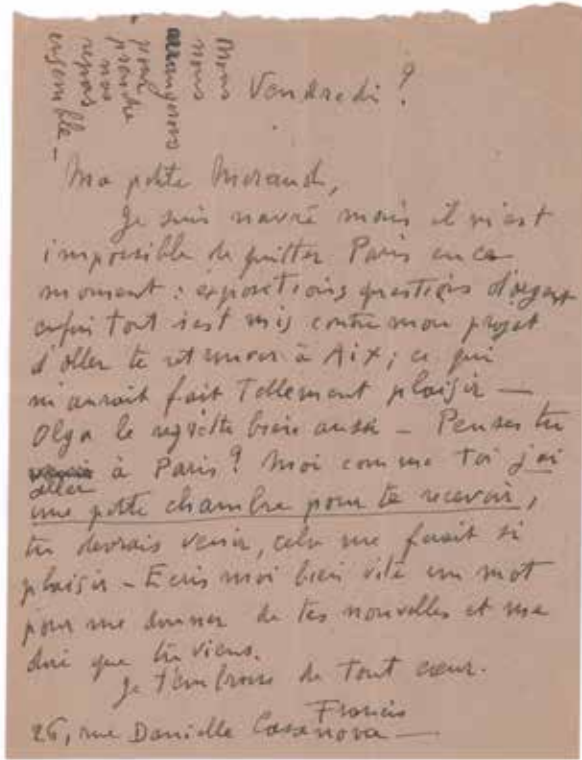 Nous
nous
arrangerons
pour
prendre
nos
repas
ensemble –
Vendredi ?
Ma petite Morand,
Je suis navré mais il m'est
impossible de quitter Paris en ce
moment : expositions questions d'argent
enfin tout s'est mis contre mon projet
d'aller te retrouver à Aix ; ce qui
m'aurait fait tellement plaisir —
Olga le regrette bien aussi – Penses tu
aller à Paris ? Moi comme toi j'ai
une petite chambre pour te recevoir,
tu devrais venir, cela me ferait si
plaisir – Ecris moi bien vite un mot
pour me donner de tes nouvelles et me
dire que tu viens.
Je t'embrasse de tout cœur.
Francis
26, rue Danielle Casanova —